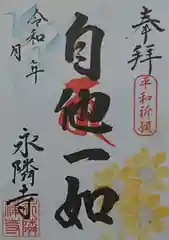 奉拝
平和祈願
自他一如
令和 年
月
永隣寺